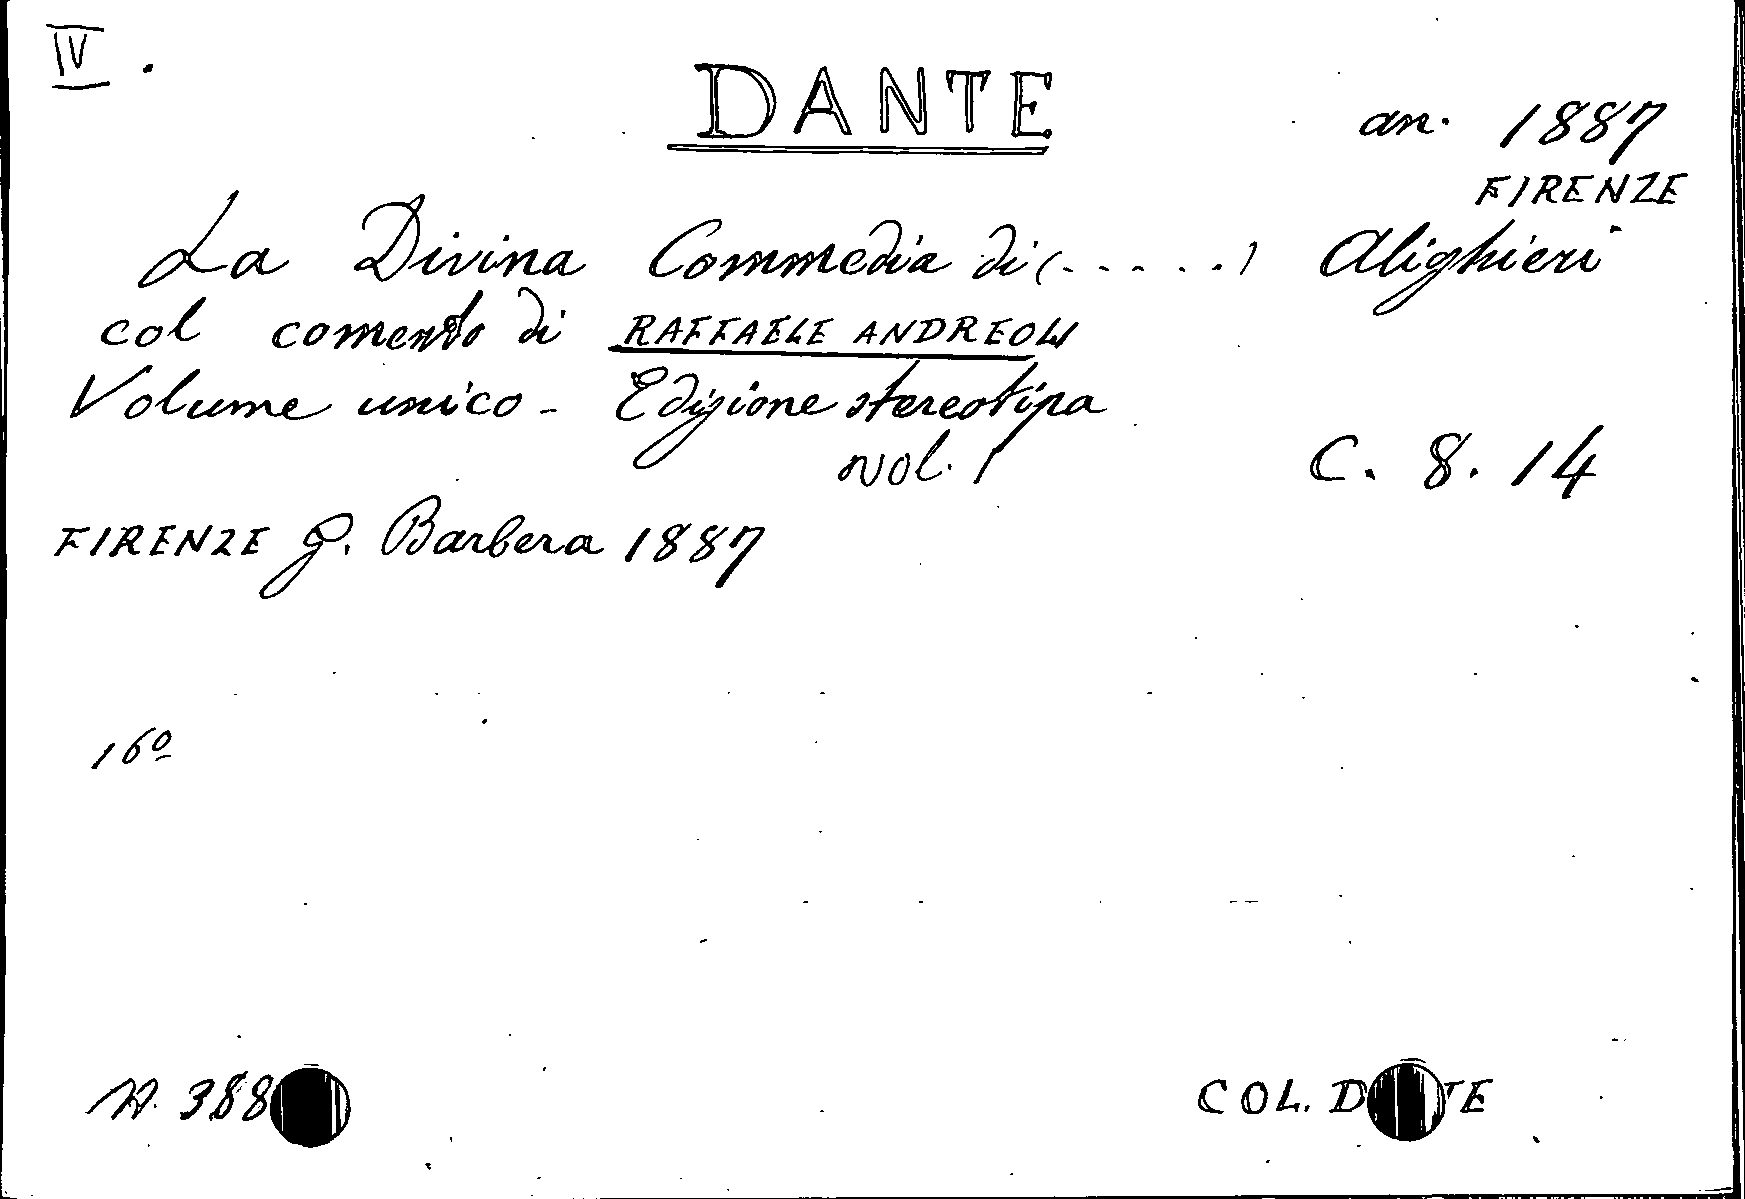 IV.
DANTE
an. 1887
FIRENZE
La Divina Commedia di (......) Alighieri
col comento di RAFFAELE ANDREOLI
Volume unico - Edizione stereotipa
vol. 1
C. 8. 14
FIRENZE G. Barbera 1887
16º
N. 388
COL. D TE